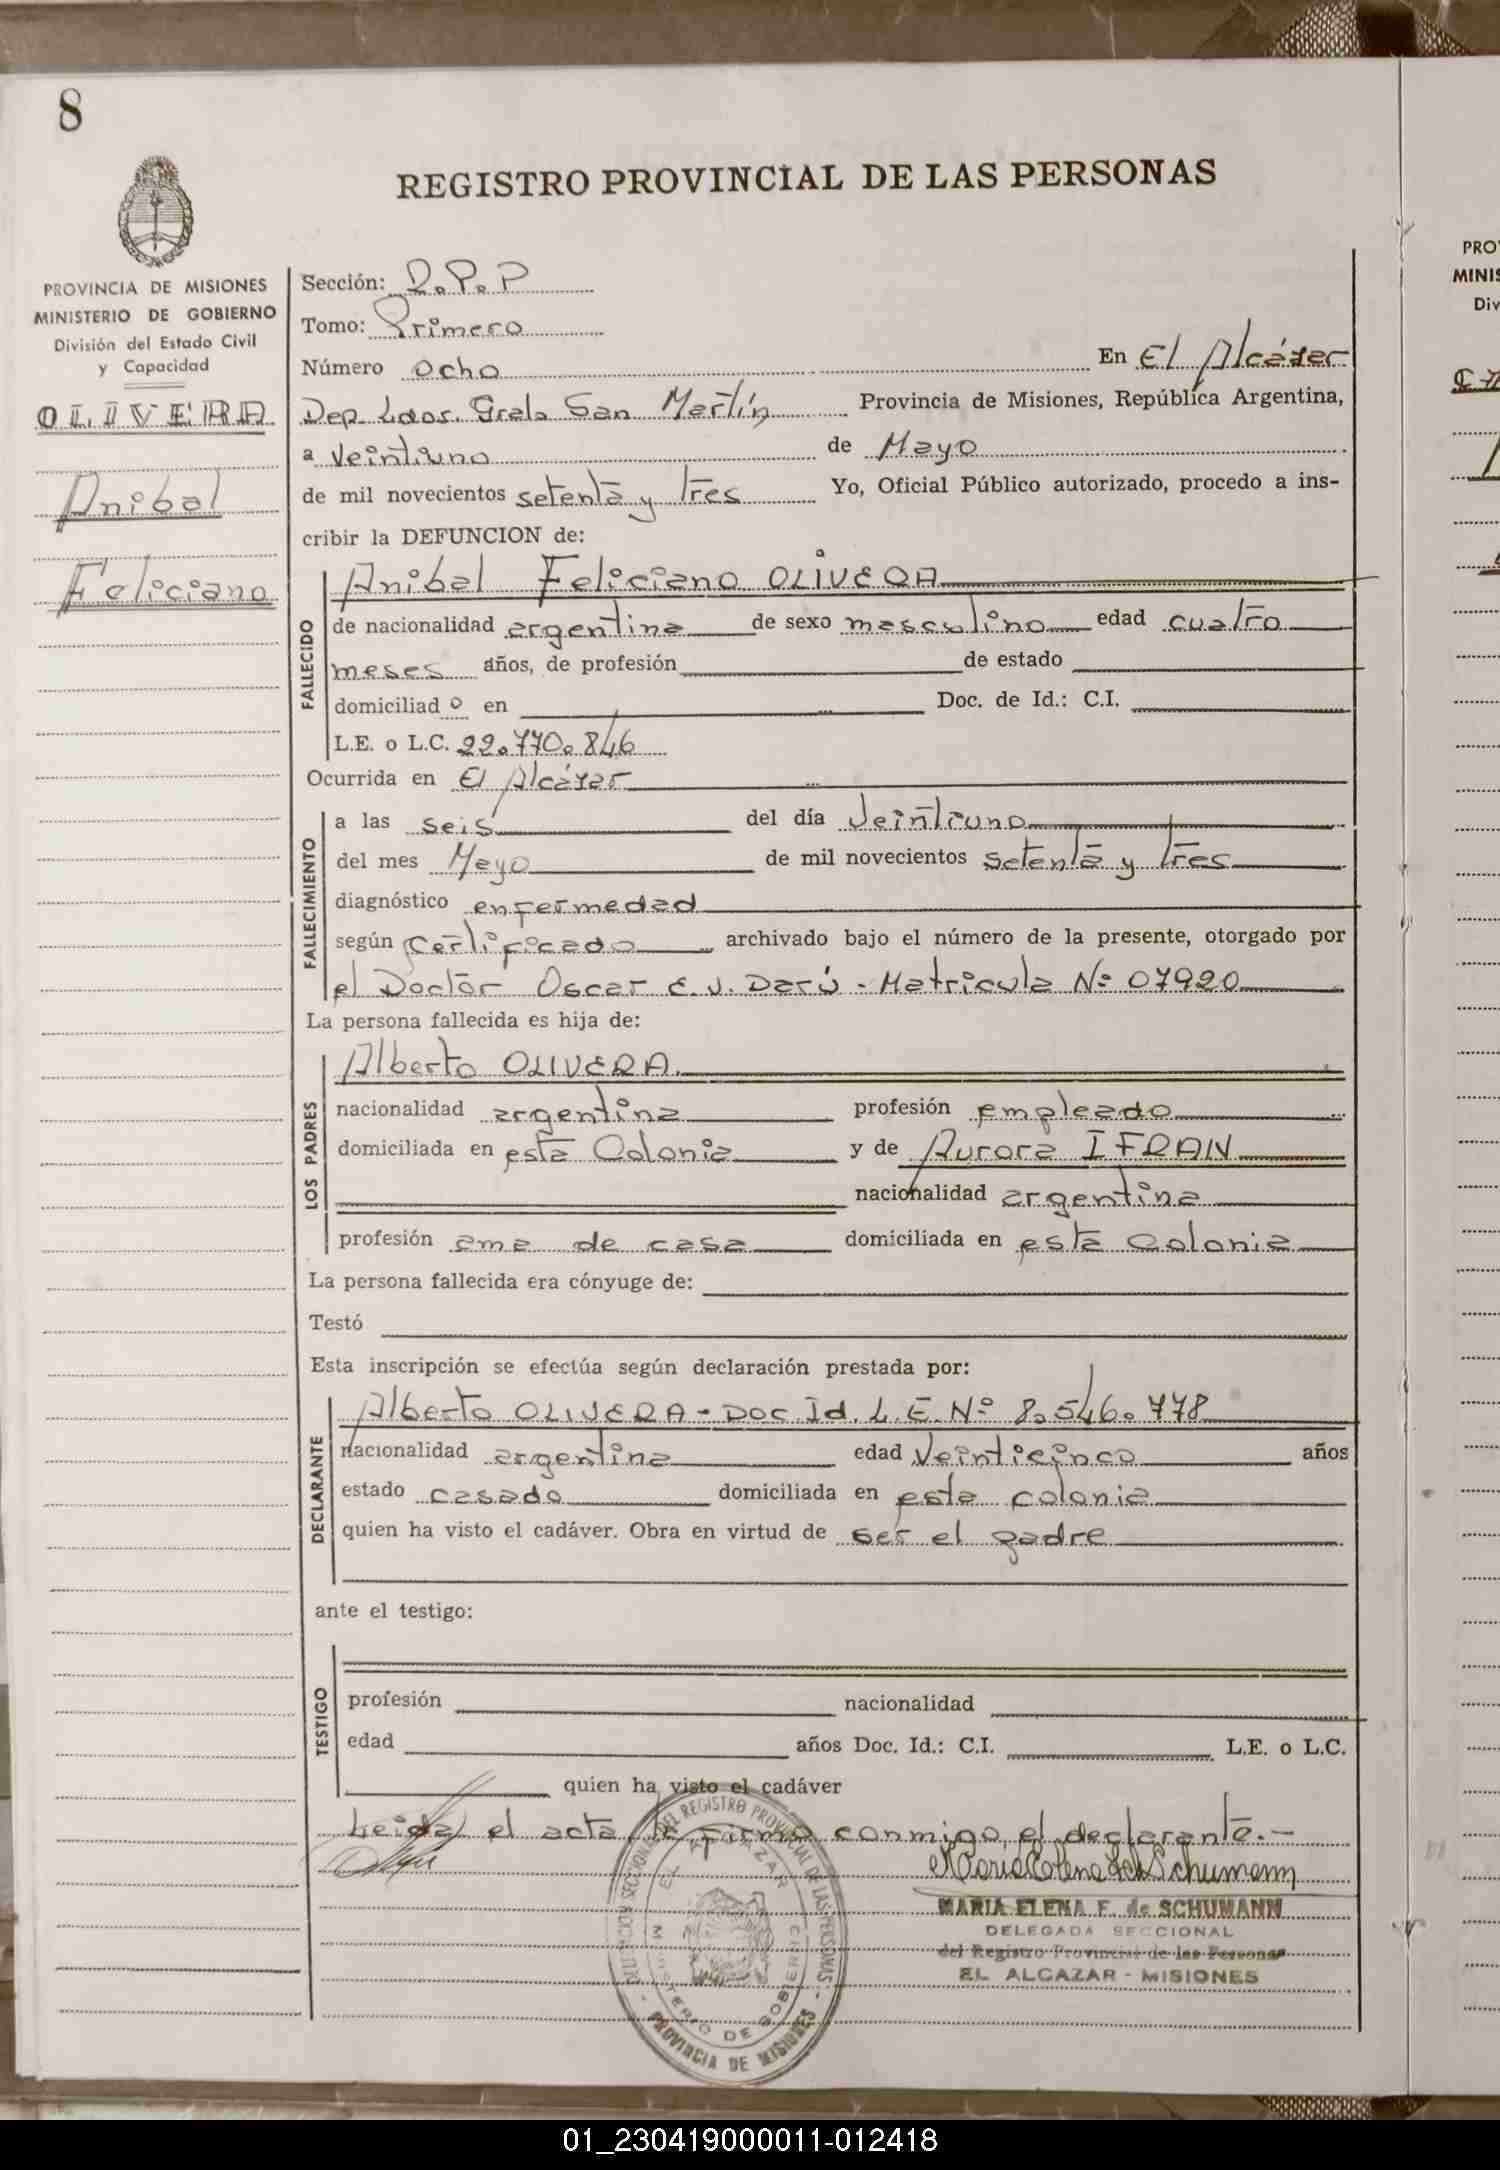 8
REGISTRO PROVINCIAL DE LAS PERSONAS
PROVINCIA DE MISIONES
MINISTERIO DE GOBIERNO
División del Estado Civil
y Capacidad
OLIVERA
Anibal
Feliciano
Sección: R.P.P
Tomo: Primero
Número Ocho En El Alcázar
Dep. Ldor. Gral. San Martín Provincia de Misiones, República Argentina,
a Veintiuno de Mayo
de mil novecientos setenta y tres Yo, Oficial Público autorizado, procedo a ins-
cribir la DEFUNCION de:
FALLECIDO
Anibal Feliciano OLIVERA
de nacionalidad argentina de sexo masculino edad cuatro
meses años, de profesión de estado
domiciliado en Doc. de Id.: C.I.
L.E. o L.C. 22.770.846
Ocurrida en El Alcázar
FALLECIMIENTO
a las seis del día Veintiuno
del mes Mayo de mil novecientos setenta y tres
diagnóstico enfermedad
según Certificado archivado bajo el número de la presente, otorgado por
el Doctor Oscar E. J. Darú - Matricula Nº 07920
La persona fallecida es hija de:
LOS PADRES
Alberto OLIVERA
nacionalidad argentina profesión empleado
domiciliada en esta Colonia y de Aurora IFRAN
nacionalidad argentina
profesión ama de casa domiciliada en esta Colonia
La persona fallecida era cónyuge de:
Testó
Esta inscripción se efectúa según declaración prestada por:
DECLARANTE
Alberto OLIVERA - Doc. Id. L.E. Nº 8.546.778
nacionalidad argentina edad Veinticinco años
estado casado domiciliada en esta colonia
quien ha visto el cadáver. Obra en virtud de ser el padre
ante el testigo:
TESTIGO
profesión nacionalidad
edad años Doc. Id.: C.I. L.E. o L.C.
quien ha visto el cadáver
Leida el acta la firma conmigo el declarante.-
Maria Elena F. de Schumann
MARIA ELENA F. de SCHUMANN
DELEGADA SECCIONAL
del Registro Provincial de las Personas
EL ALCAZAR - MISIONES
DELEGACION SECCIONAL DEL REGISTRO PROVINCIAL DE LAS PERSONAS
EL ALCAZAR
MINISTERIO DE GOBIERNO
PROVINCIA DE MISIONES
PRO
MINIS
Div
01_230419000011-012418